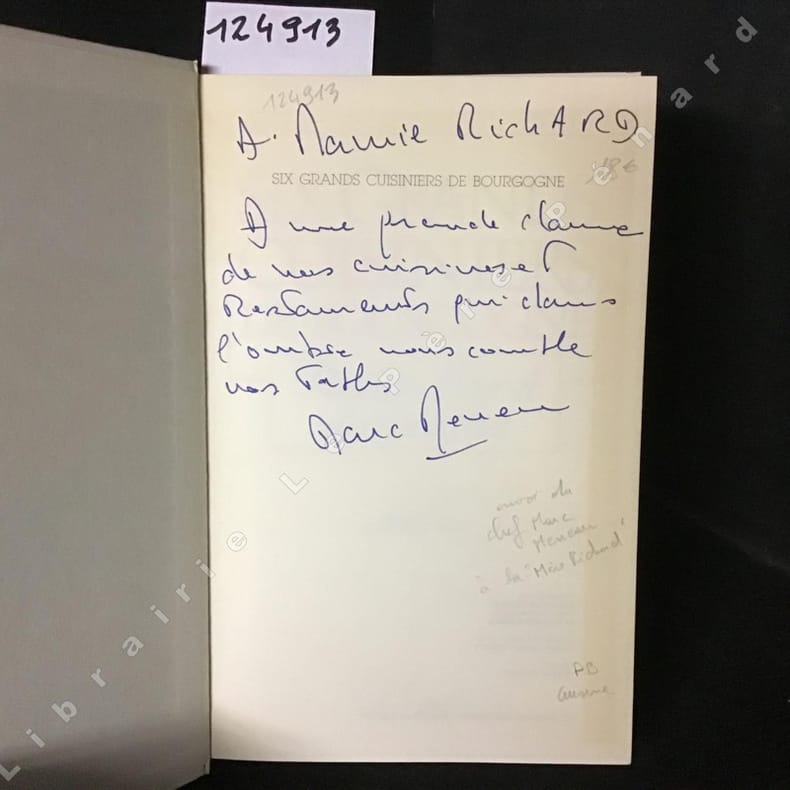 124913
124913
A. Mamie RicHARD
SIX GRANDS CUISINIERS DE BOURGOGNE
18€
A une grande dame
de nos cuisines et
Restaurants qui dans
l'ombre nous comble
nos Tables
Marc Meneau
envoi du
chef Marc
Meneau
à la "Mère Richard"
PB
Cuisine
Librairie Le Père Pénard